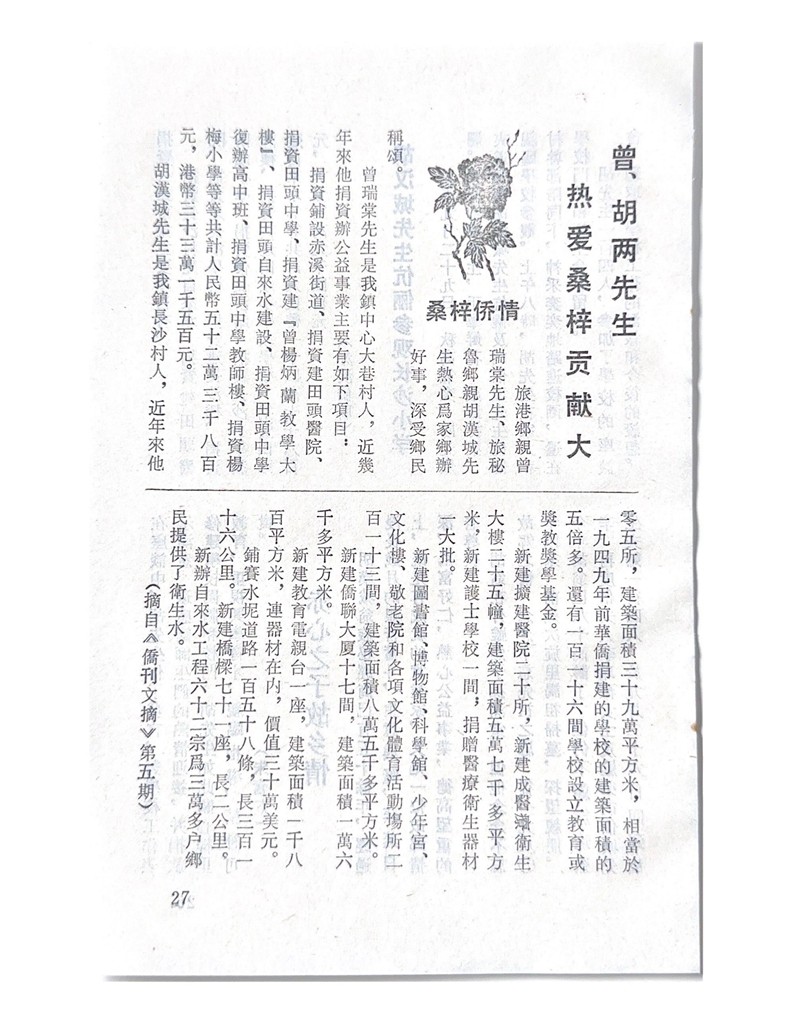 曾、胡两先生
热爱桑梓贡献大
桑梓侨情
旅港鄉親曾
瑞棠先生、旅秘
魯鄉親胡漢城先
生熱心爲家鄉辦
好事，深受鄉民
稱頌。
曾瑞棠先生是我鎮中心大巷村人，近幾
年來他捐資辦公益事業主要有如下項目：
捐資鋪設赤溪街道、捐資建田頭醫院、
捐資田頭中學、捐資建『曾楊炳蘭教學大
樓』、捐資田頭自來水建設、捐資田頭中學
復辦高中班、捐資田頭中學教師樓、捐資楊
梅小學等等共計人民幣五十二萬三千八百
元，港幣三十三萬一千五百元。
胡漢城先生是我鎮長沙村人，近年來他
零五所，建築面積三十九萬平方米，相當於
一九四九年前華僑捐建的學校的建築面積的
五倍多。還有一百一十六間學校設立教育或
獎教獎學基金。
新建擴建醫院二十所，新建成醫療衛生
大樓二十五幢，建築面積五萬七千多平方
米，新建護士學校一間，捐贈醫療衛生器材
一大批。
新建圖書館、博物館、科學館、少年宮、
文化樓、敬老院和各項文化體育活動塲所二
百一十三間，建築面積八萬五千多平方米。
新建僑聯大厦十七間，建築面積一萬六
千多平方米。
新建教育電視台一座，建築面積一千八
百平方米，連器材在內，價值三十萬美元。
鋪賽水坭道路一百五十八條，長三百一
十六公里。新建橋樑七十一座，長二公里。
新辦自來水工程六十二宗爲三萬多户鄉
民提供了衛生水。
（摘自《僑刊文摘》第五期）
27